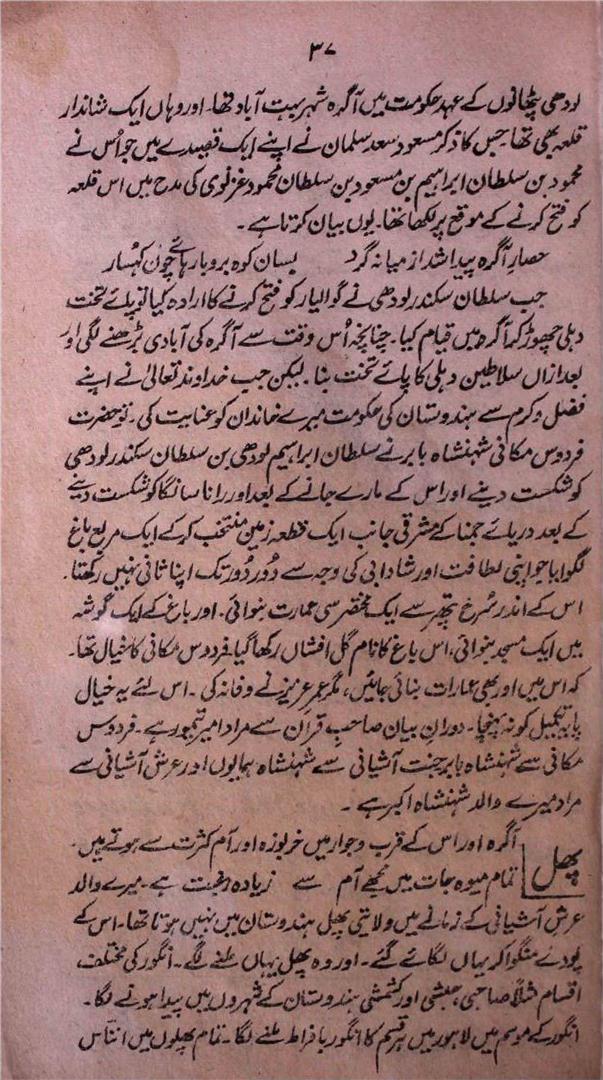 ۳۷
لودھی پٹھانوں کے عہد حکومت میں آگرہ شہر بہت آباد تھا۔ اور وہاں ایک شاندار
قلعہ بھی تھا جس کا ذکر مسعود سعد سلمان نے اپنے ایک قصیدے میں جو اُس نے
محمود بن سلطان ابراہیم بن مسعود بن سلطان محمود غزنوی کی مدح میں اس قلعہ
کو فتح کرنے کے موقع پر لکھا تھا۔ یوں بیان کرتا ہے۔
حصارِ آگرہ پیدا شد از میانہ گرد بسان کوہ برو بارہائے چون کہسار
جب سلطان سکندر لودھی نے گوالیار کو فتح کرنے کا ارادہ کیا تو پائے تخت
دہلی چھوڑ کر آگرہ میں قیام کیا۔ چنانچہ اُس وقت سے آگرہ کی آبادی بڑھنے لگی اور
بعد ازاں سلاطین دہلی کا پائے تخت بنا۔ لیکن جب خداوند تعالیٰ نے اپنے
فضل و کرم سے ہندوستان کی حکومت میرے خاندان کو عنایت کی۔ تو حضرت
فردوس مکانی شہنشاہ بابر نے سلطان ابراہیم لودھی بن سلطان سکندر لودھی
کو شکست دینے اور اس کے مارے جانے کے بعد اور رانا سانگا کو شکست دینے
کے بعد دریائے جمنا کے مشرقی جانب ایک قطعہ زمین منتخب کر کے ایک مربع باغ
لگوایا جو اپنی لطافت اور شادابی کی وجہ سے دُور دُور تک اپنا ثانی نہیں رکھتا۔
اس کے اندر سُرخ پتھر سے ایک مختصر سی عمارت بنوائی۔ اور باغ کے ایک گوشہ
میں ایک مسجد بنوائی، اس باغ کا نام گل افشاں رکھا گیا۔ فردوس مکانی کا خیال تھا۔
کہ اس میں اور بھی عمارات بنائی جائیں، مگر عمر عزیز نے وفا نہ کی۔ اس لئے یہ خیال
پایہ تکمیل کو نہ پہنچا۔ دورانِ بیان صاحب قرآن سے مراد امیر تیمور ہے۔ فردوس
مکانی سے شہنشاہ بابر جنت آشیانی سے شہنشاہ ہمایوں اور عرش آشیانی سے
مراد میرے والد شہنشاہ اکبر ہے۔
پھل
آگرہ اور اس کے قرب و جوار میں خربوزہ اور آم کثرت سے ہوتے ہیں۔
تمام میوہ جات میں مجھے آم سے زیادہ رغبت ہے۔ میرے والد
عرش آشیانی کے زمانے میں ولایتی پھل ہندوستان میں نہیں ہوتا تھا۔ اس کے
پودے منگوا کر یہاں لگائے گئے۔ اور وہ پھل یہاں ملنے لگے۔ انگور کی مختلف
اقسام مثلاً صاحبی، حبشی اور کشمشی ہندوستان کے شہروں میں پیدا ہونے لگا۔
انگور کے موسم میں لاہور میں ہر قسم کا انگور بافراط ملنے لگا۔ تمام پھلوں میں انناس